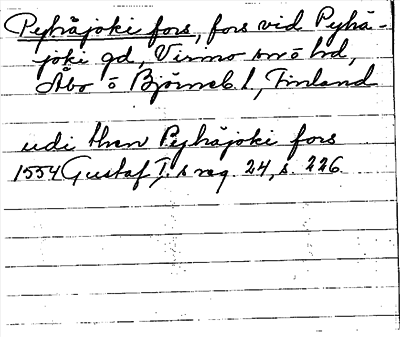 Pyhäjoki fors, fors vid Pyhä-
joki gd, Virmo sn o hd,
Åbo o Björneb. l, Finland
udi then Pyhäjoki fors
1554 Gustaf I:s reg. 24, s. 226.